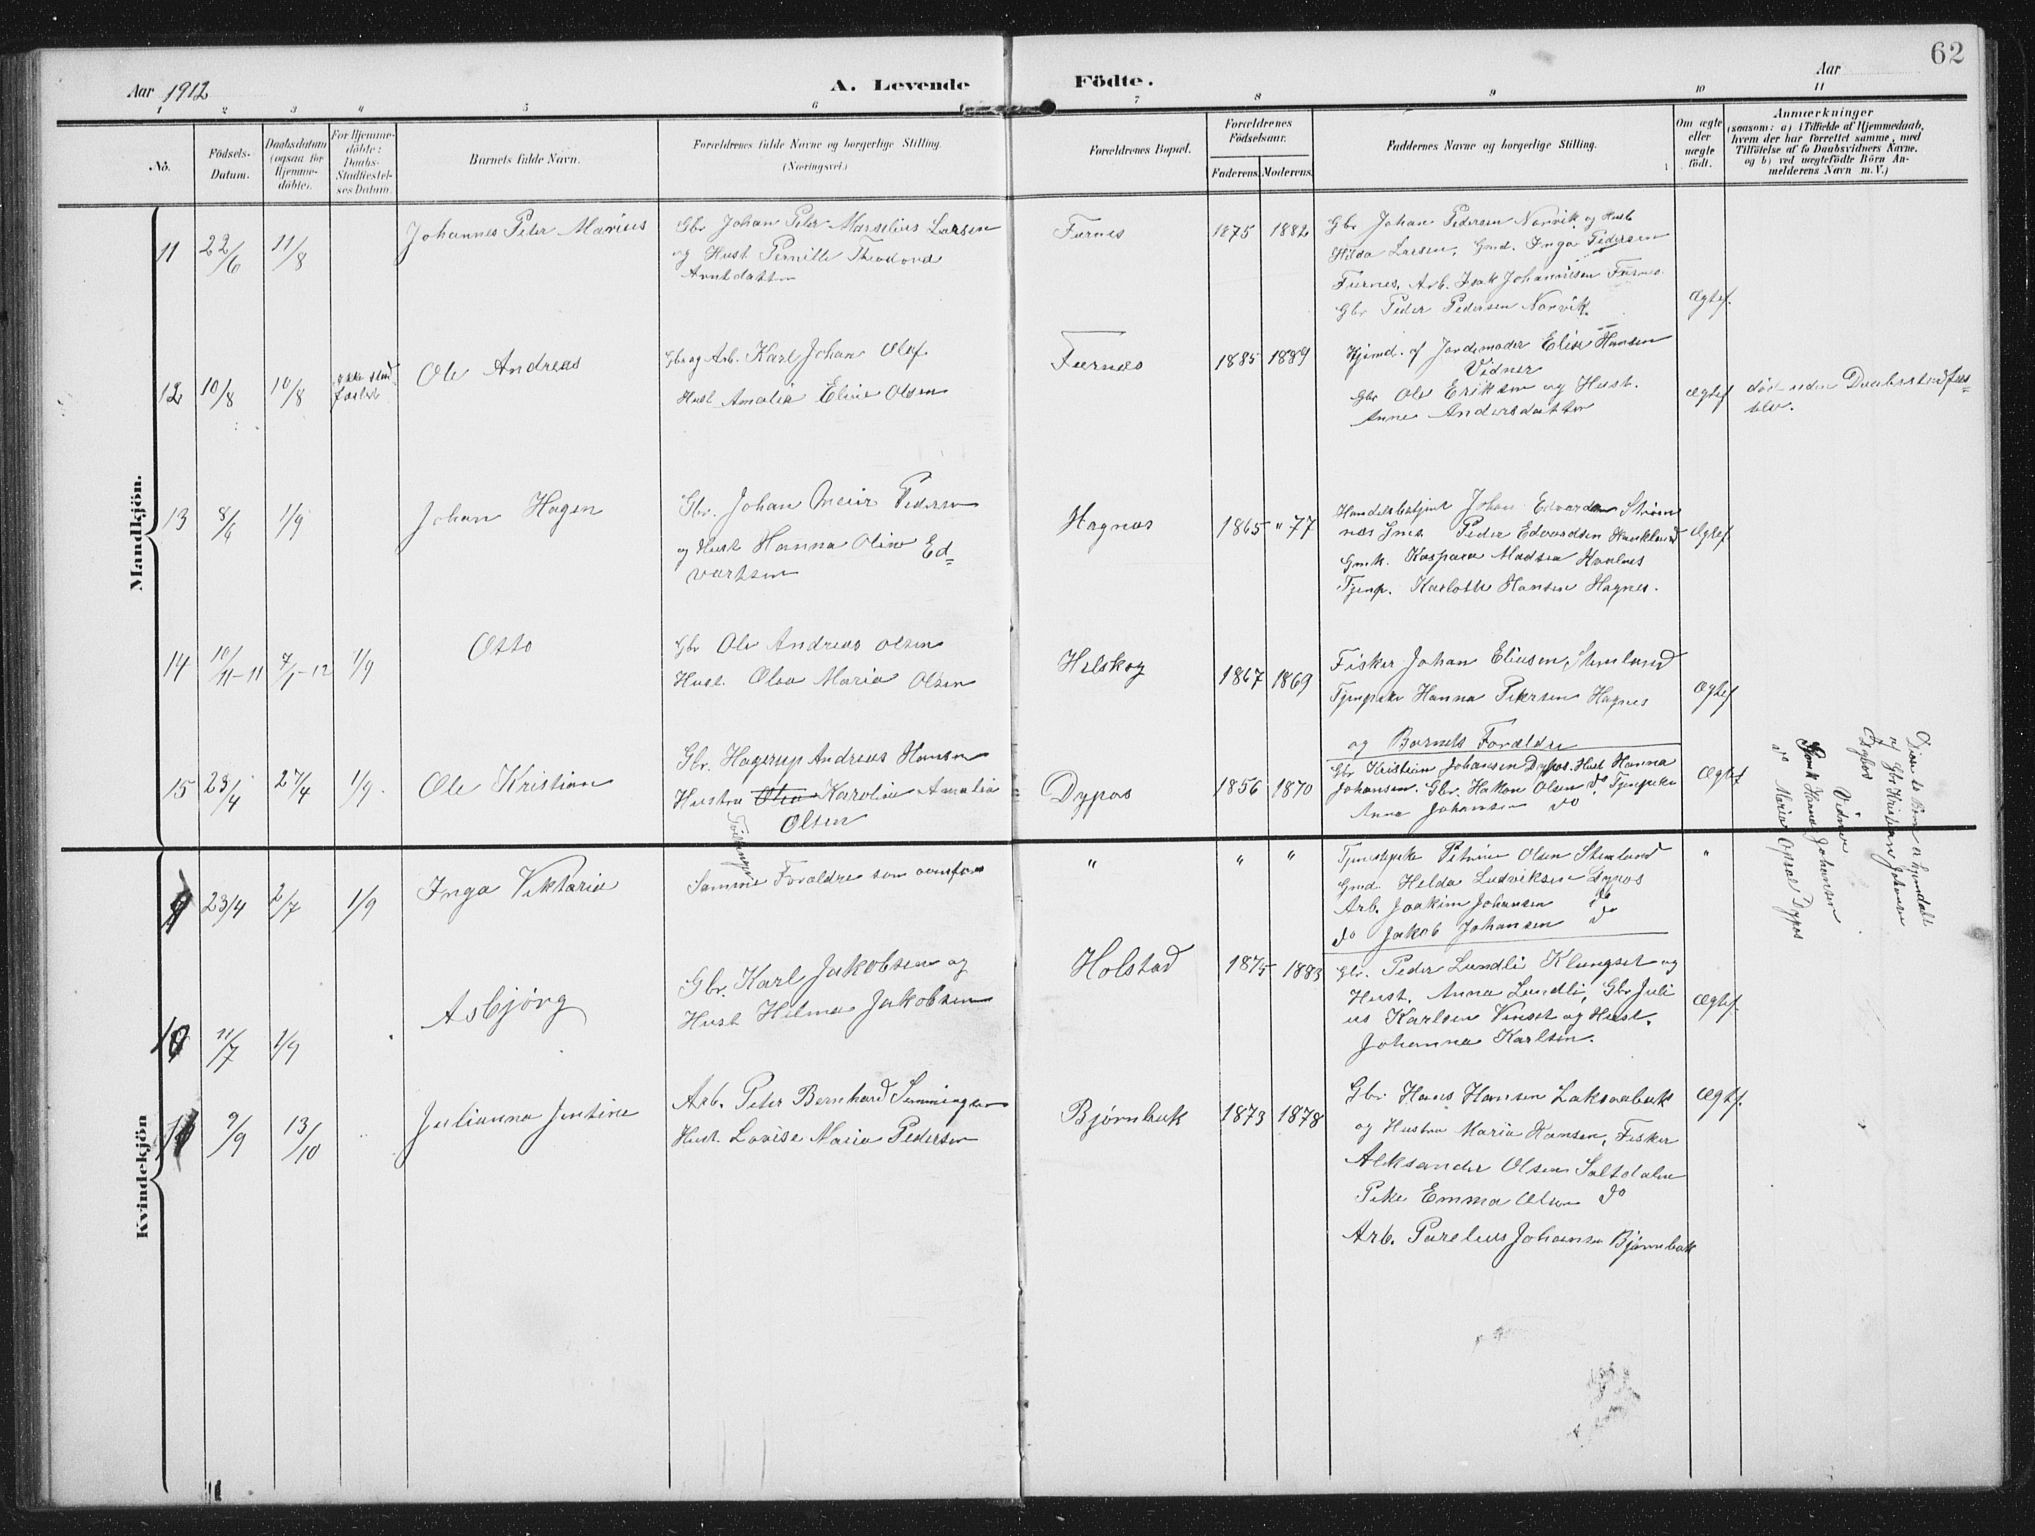 62
Aar 1912
A. Levende Födte.
Aar
1 2 3 4 5 6 7 8 9 10 11
No.
Födsels-Datum.
Daabsdatum (ogsaa for Hjemmedöbte).
For Hjemmedöbte: Daabs-Stadfæstelses Datum.
Barnets fulde Navn.
Forældrenes fulde Navne og borgerlige Stilling.
(Næringsvei.)
Forældrenes Bopæl.
Forældrenes Födselsaar.
Faderens. Moderens.
Faddernes Navne og borgerlige Stilling.
Om ægte eller uægte födt.
Anmærkninger
(saasom: a) i Tilfælde af Hjemmedaab,
hvem der har forrettet samme, med
Tilföielse af to Daabsvidners Navne,
og b) ved uægtefödte Börn An-
melderens Navn m. V.)
Mandkjön.
11 22/6 11/8
Johannes Peter Marius
Gbr Johan Peter Marselius Larsen
og Hust Pernille Theodora
Arntdatter
Furnes
1875 1882
Gbr Johan Pedersen Norvik og Hust
Hilda Larsen, Gmd. Inga Pedersen
Furnes, Arb. Isak Johannesen Furnes
Gbr Peder Pedersen Norvik.
Ægtef.
12 10/8 10/8
ikke stad
fæstet
Ole Andreas
Gbr og Arb. Karl Johan Olaf
Hust Amalia Eline Olsen
Furnes
1885 1889
Hjemd. af Jordemoder Elise Hansen
Vidner
Gbr Ole Eriksen og Hust.
Anne Andersdatter
Ægtef
død uden Daabsstadfæs=
telse.
13 8/6 1/9
Johan Hagen
Gbr. Johan Meier Pedersen
og Hust Hanna Oline Ed=
vartsen
Hagnes
1865 " 77
Handelsbetjent Johan Edvardsen Strøm
nes Peder Edvardsen
Gmk. Kaspara Madsen
Tjenp. Karlotte Hansen Hagnes.
Ægtef
14 10/11-11 7/1-12 1/9
Otto
Gbr Ole Andreas Olsen
Hust. Olea Maria Olsen
Helskog
1867 1869
Fisker Johan Eliesen, Stenland
Tjenpike Hanna Petersen Hagnes
og Barnets Forældre
Ægtef
15 23/4 27/4 1/9
Ole Kristian
Gbr. Hagerup Andreas Hansen
Hustru Olea Karoline Amalia
Olsen
Tvillinger
Dypos
1856 1870
Gbr Kristian Johansen Dypos. Hust Hanna
Johansen. Gbr. Hakon Olsen do. Tjenpike
Anna Johansen do
Ægtef
Disse to Børn er hjemdøbt
af Gbr Kristian Johansen
Dypos
Vidner
Hanna Johansen
do Maria Opsal Dypos
Kvindekjön
9 23/4 2/7 1/9
Inga Viktoria
Samme Forældre som ovenfor
" " "
Tjenestepike Petrine Olsen Stenland
Gmd. Helda Ludviksen Dypos
Arb. Joakim Johansen do
do Jakob Johansen do
"
10 11/7 1/9
Asbjørg
Gbr. Karl Jakobsen og
Hust Helma Jakobsen
Holstad
1875 1883
Gbr. Peder Lundli Klungset og
Hust. Anna Lundli, Gbr Juli
us Karlsen Vinset og Hust.
Johanna Karlsen.
Ægtef.
11 9/9 13/10
Julianna Jentine
Arb. Peter Bernhard Semmingsen
Hust. Lovise Maria Pedersen
Bjørnbak
1873 1878
Gbr Hans Hansen Laksaabak
og Hustru Maria Hansen, Fisker
Aleksander Olsen Saltdalen
Pike Emma Olsen do
Arb. Parelius Johansen Bjørnbak
Ægtf.